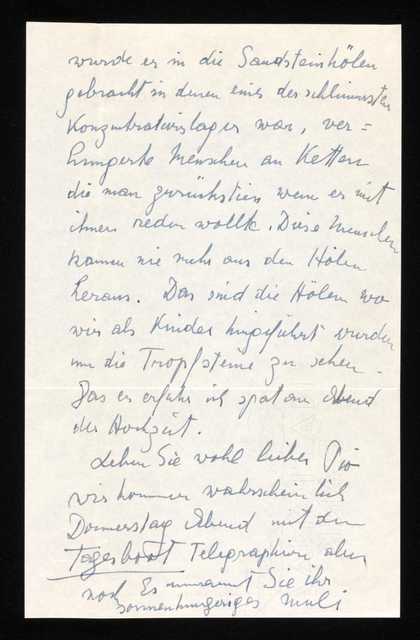 wurde er in die Sandsteinhölen
gebracht in denen eines der schlimmsten
Konzentrationslager war, ver=
hungerte Menschen an Ketten
die man zurückstiess wenn er mit
ihnen reden wollte. Diese Menschen
kamen nie mehr aus den Hölen
heraus. Das sind die Hölen wo
wir als Kinder hingeführt wurden
um die Tropfsteine zu sehen.
Das er erfuhr ich spät am Abend
der Hochzeit.
Leben Sie wohl lieber Pio
wir kommen wahrscheinlich
Donnerstag Abend mit dem
Tagesboot Telegraphiere aber
noch Es umarmt Sie ihr
sonnenhungriges Muli